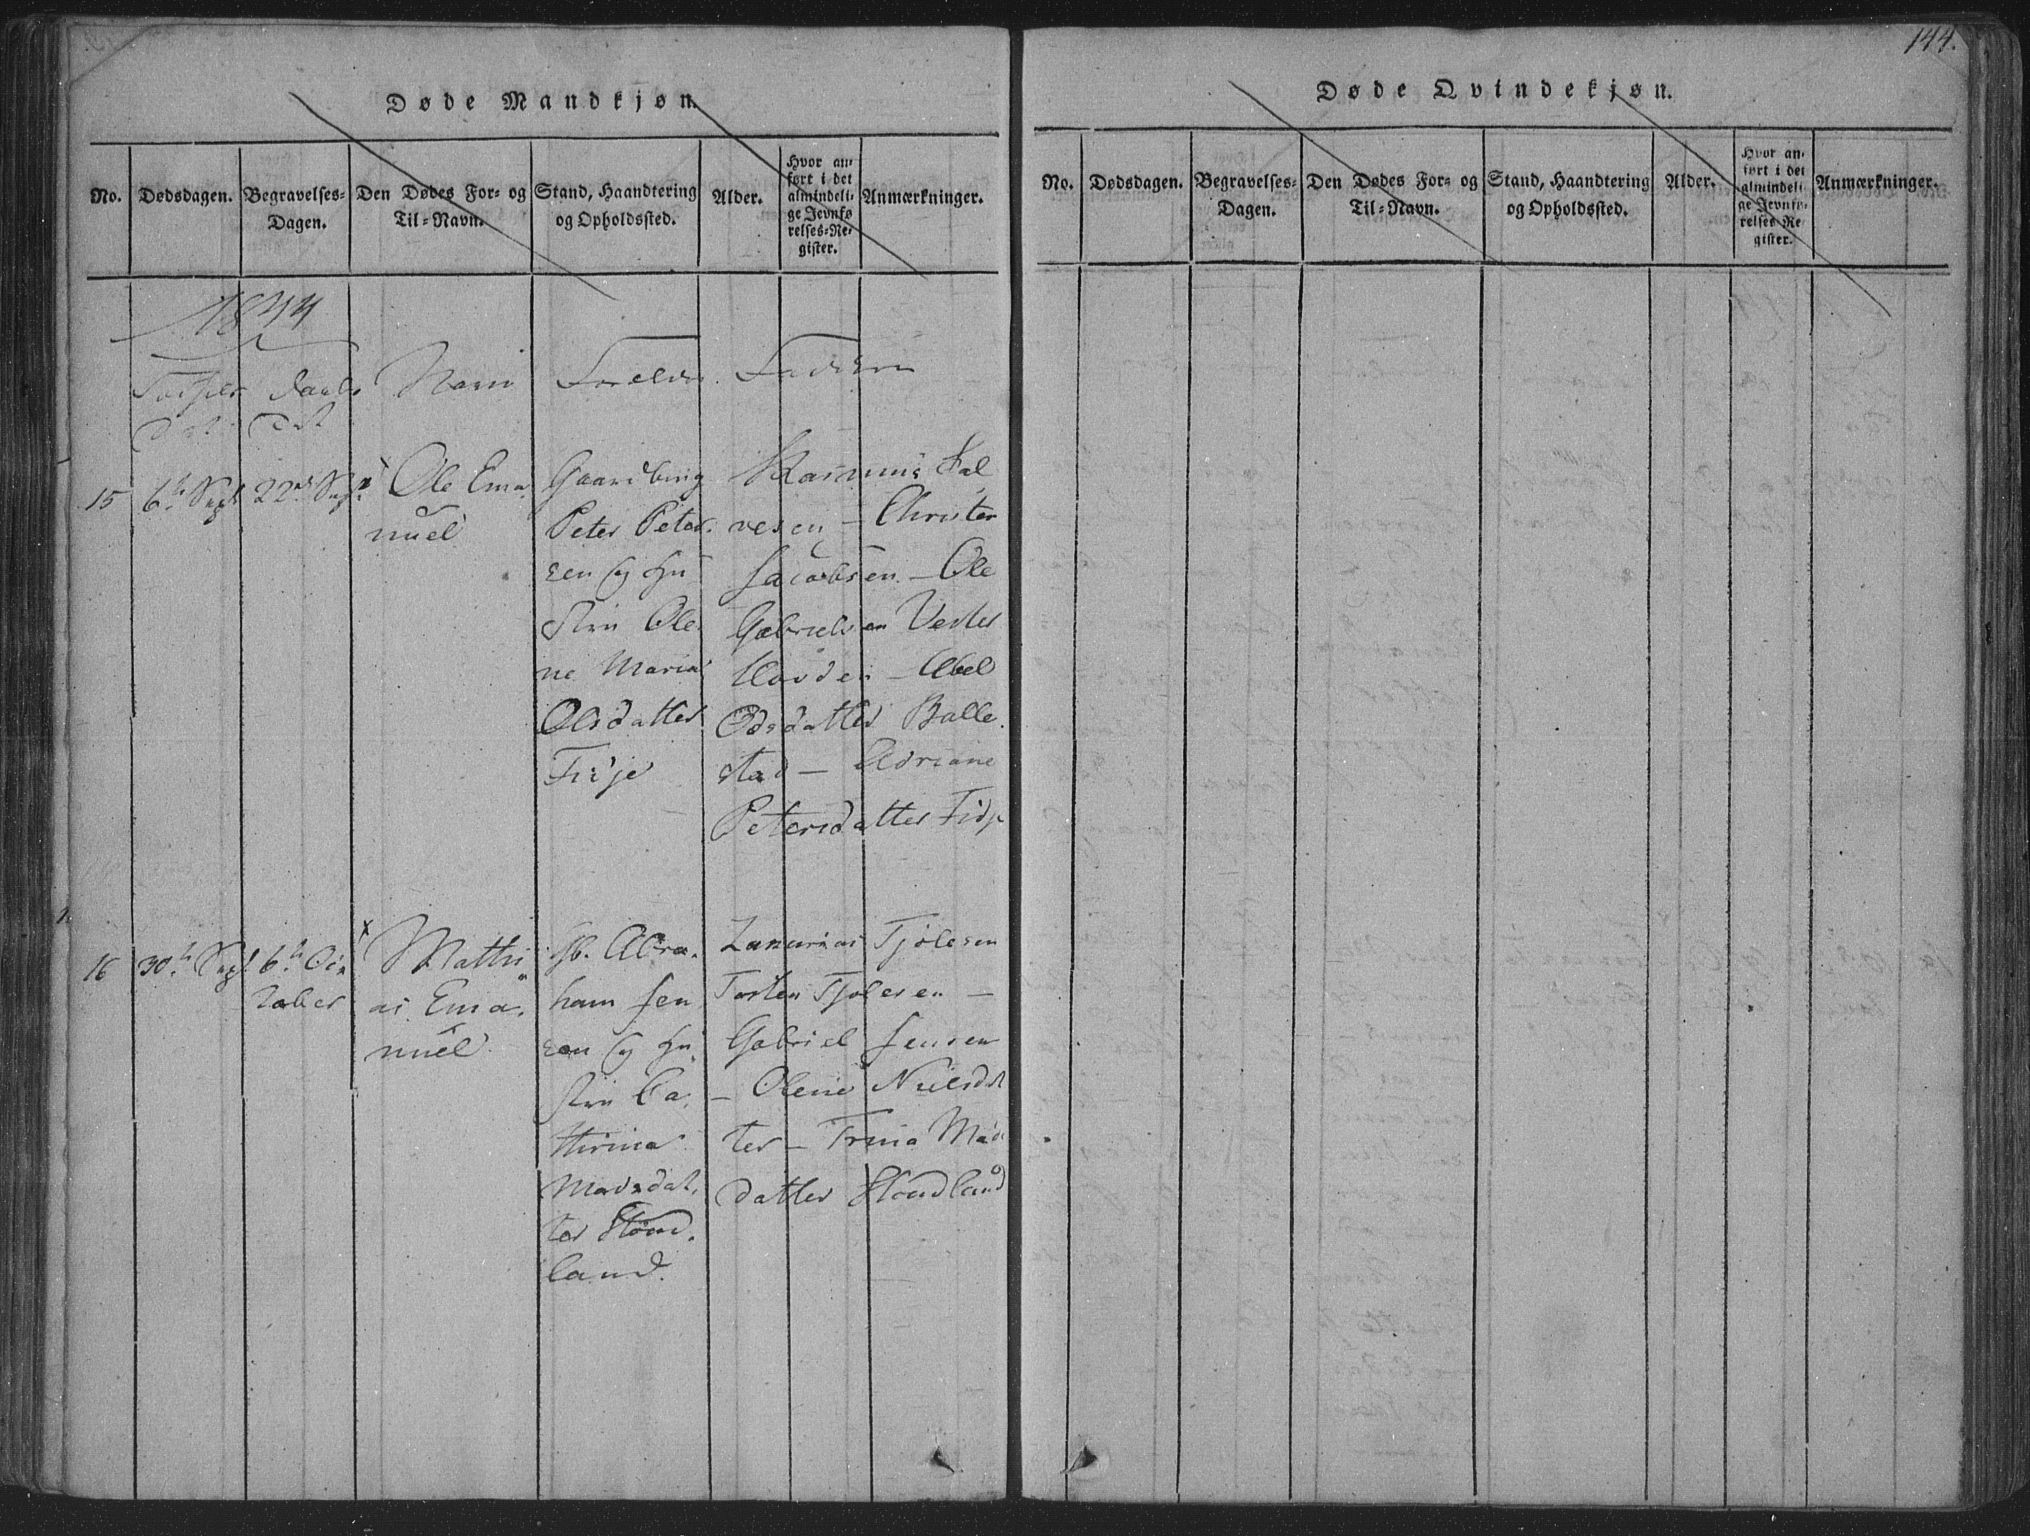 144.
Døde Mandkjøn.
No.
Dødsdagen.
Begravelses-
Dagen.
Den Dødes For- og
Til-Navn.
Stand, Haandtering
og Opholdssted.
Alder.
Hvor an-
ført i det
almindeli-
ge Jevnfø-
relses-Re-
gister.
Anmærkninger.
1844
Navn
Fadder
15
6te Sept
22de Sept
Ole Ema
nuel
Gaardbrug
Peter Peter
sen og Hu
stru Ole
ne Maria
Olsdatter
Fidje
Rasmus Sal
vesen – Christen
Jacobsen – Ole
Gabrielsen Vester
– Abel
Odsdatter Balle
stad – Adriane
Petersdatter Fidje
16
30te Sept
6te Oc
tober
Mathi
as Ema
nuel
Hb. Abra
ham Jen
sen og Hu
stru Ca
thrina
Madsdat
ter
land.
Zakarias Tjølesen
Torsten Tjølesen –
Gabriel Jensen
– Olene Nielsdat
ter – Trina Mads
datter
Døde Qvindekjøn.
No.
Dødsdagen.
Begravelses-
Dagen.
Den Dødes For- og
Til-Navn.
Stand, Haandtering
og Opholdssted.
Alder.
Hvor an-
ført i det
almindeli-
ge Jevnfø-
relses-Re-
gister.
Anmærkninger.